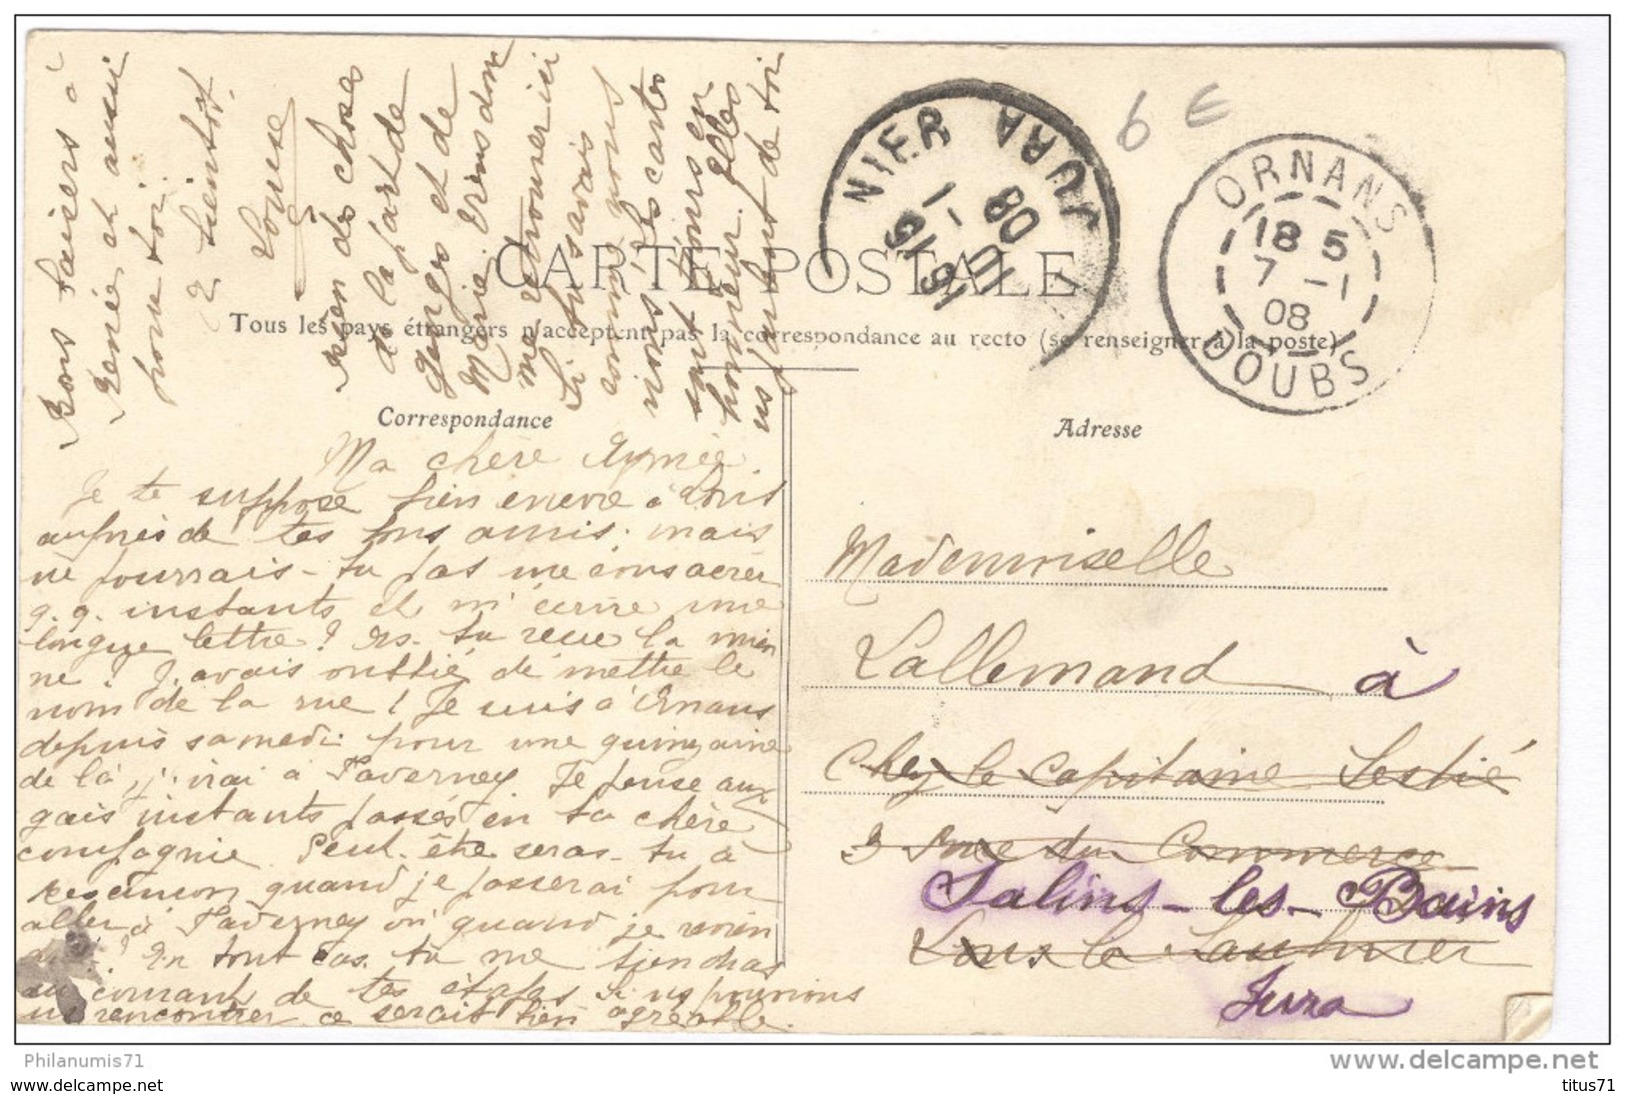 CARTE POSTALE
Tous les pays étrangers n'acceptent pas la correspondance au recto (se renseigner à la poste)
Correspondance
Adresse
6 €
NIER JURA
08
ORNANS
18 5
7 - 1
08
DOUBS
Ma chère Aymée.
Je te suppose bien encore à Lons
auprès de tes bons amis. mais
ne pourrais-tu pas me consacrer
q.q. instants et m'écrire une
longue lettre ? as-tu reçu la mien
ne ? J'avais oublié de mettre le
nom de la rue ! Je suis à Ornans
depuis samedi pour une quinzaine
de là, j'irai à Faverney. Je pense aux
gais instants passés en ta chère
compagnie. Peut-être seras-tu à
Besançon quand je passerai pour
aller à Faverney ou quand je revien
? En tout cas tu me tiendras
au courant de tes étapes. Si ns pouvions
ns rencontrer ce serait bien agréable.
Bons baisers à
Renée et aussi
pour toi.
A bientôt.
Louise
Bien des choses
de la part de
Georges et de
Marie. Viens donc
me retrouver ici
Si tu savais
comme nous
rions ! Les cartes
sont toujours en
honneur. Elles
ns parlent de toi
Mademoiselle
Lallemand à
Chez le Capitaine
3 Rue du Commerce
Salins-les-Bains
Lons le Saulnier
Jura
Philanumis71
www.delcampe.net
www.delcampe.net
titus71